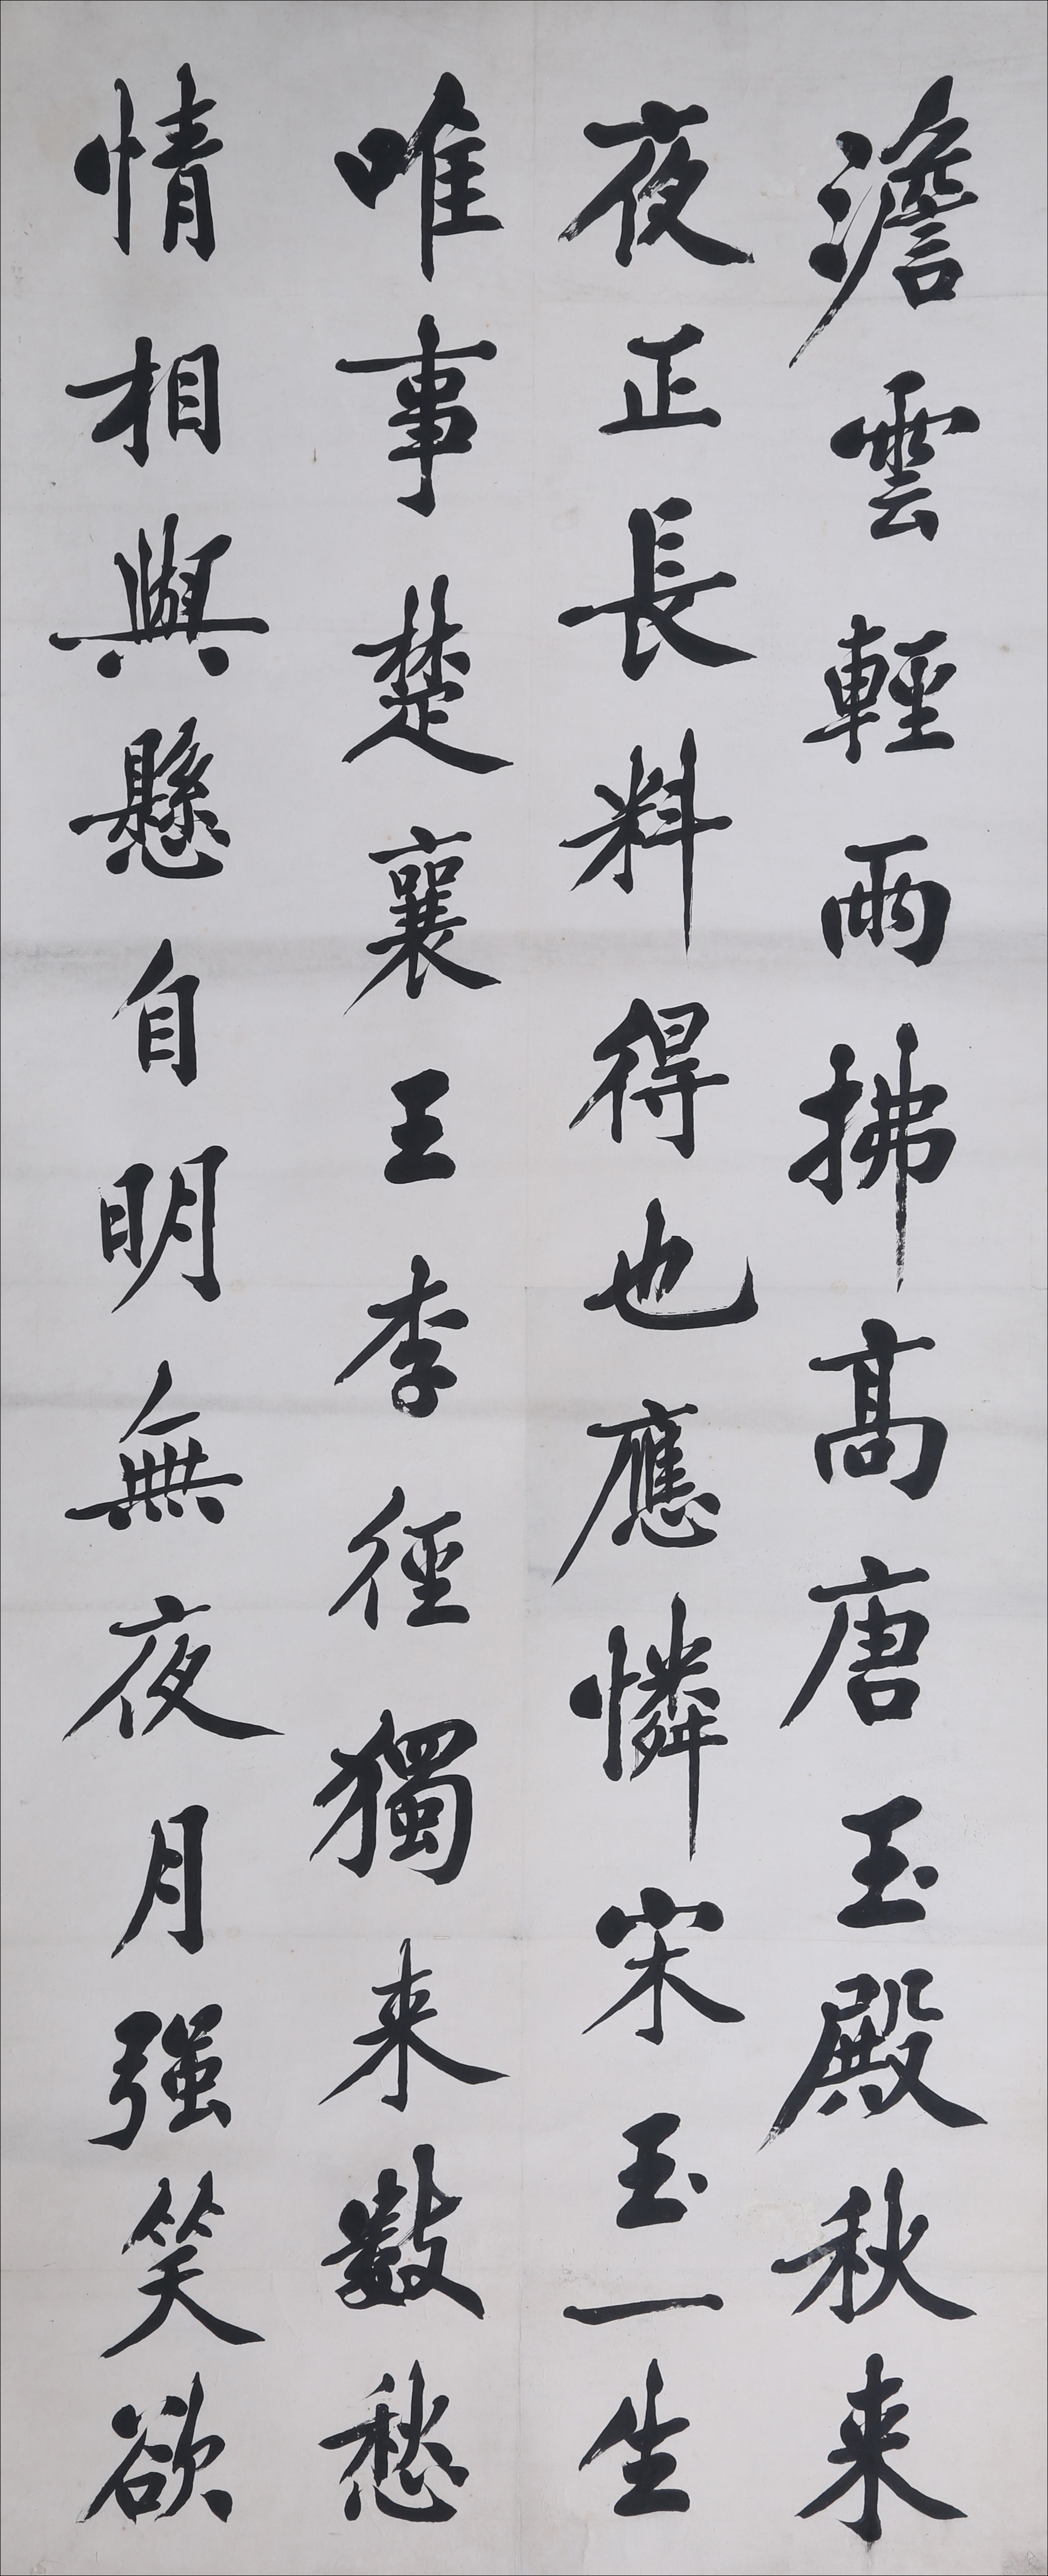 澹雲輕雨拂高唐玉殿秋来
夜正長料得也應憐宋玉一生
唯事楚襄王李徑獨来數愁
情相與懸自明無夜月强笑欲